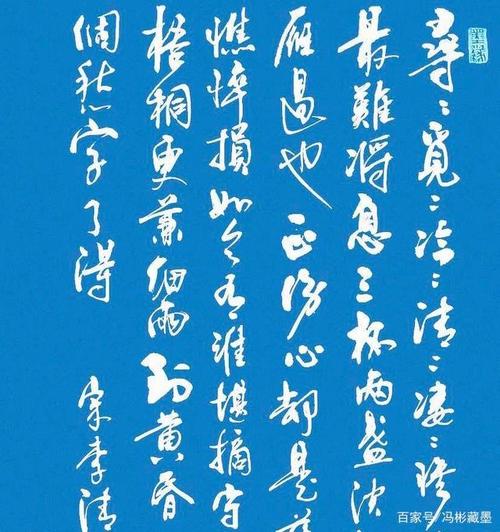 尋:覓:冷:清:凄:
最難將息三杯兩盞
雁過也正傷心却是
憔悴損如今有誰堪摘守
梧桐更兼細雨到黄昏
個愁字了得
宋李清
百家号/冯彬藏墨